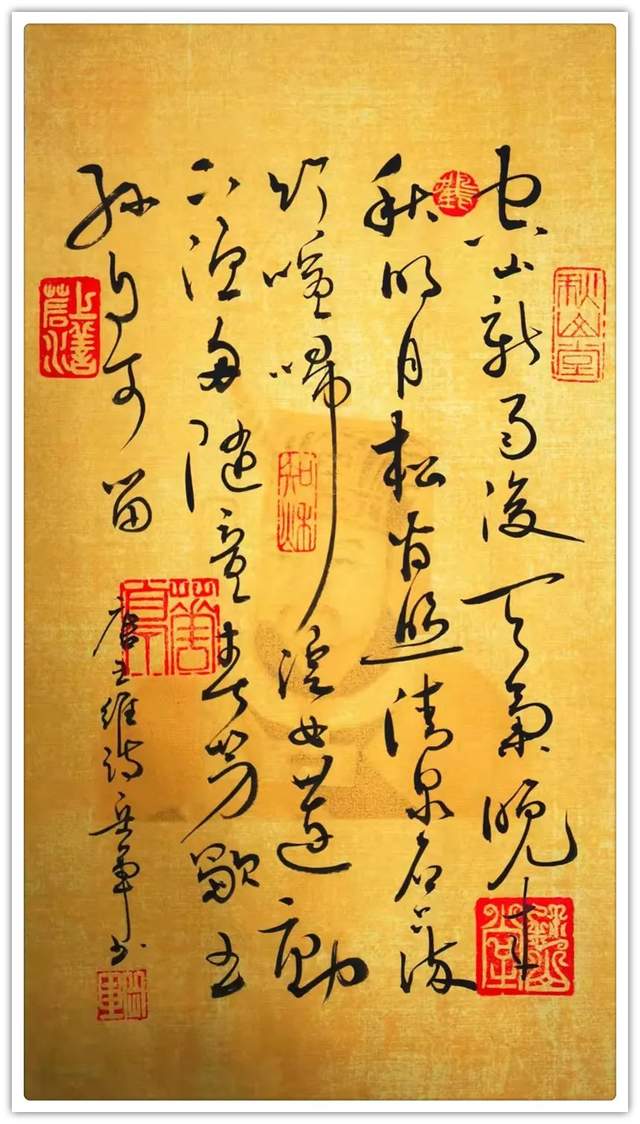 空山新雨後天氣晚来
秋明月松間照清泉石上流
竹喧歸浣女蓮動
下漁舟随意春芳歇王
孫自可留
唐王維詩
秋山堂